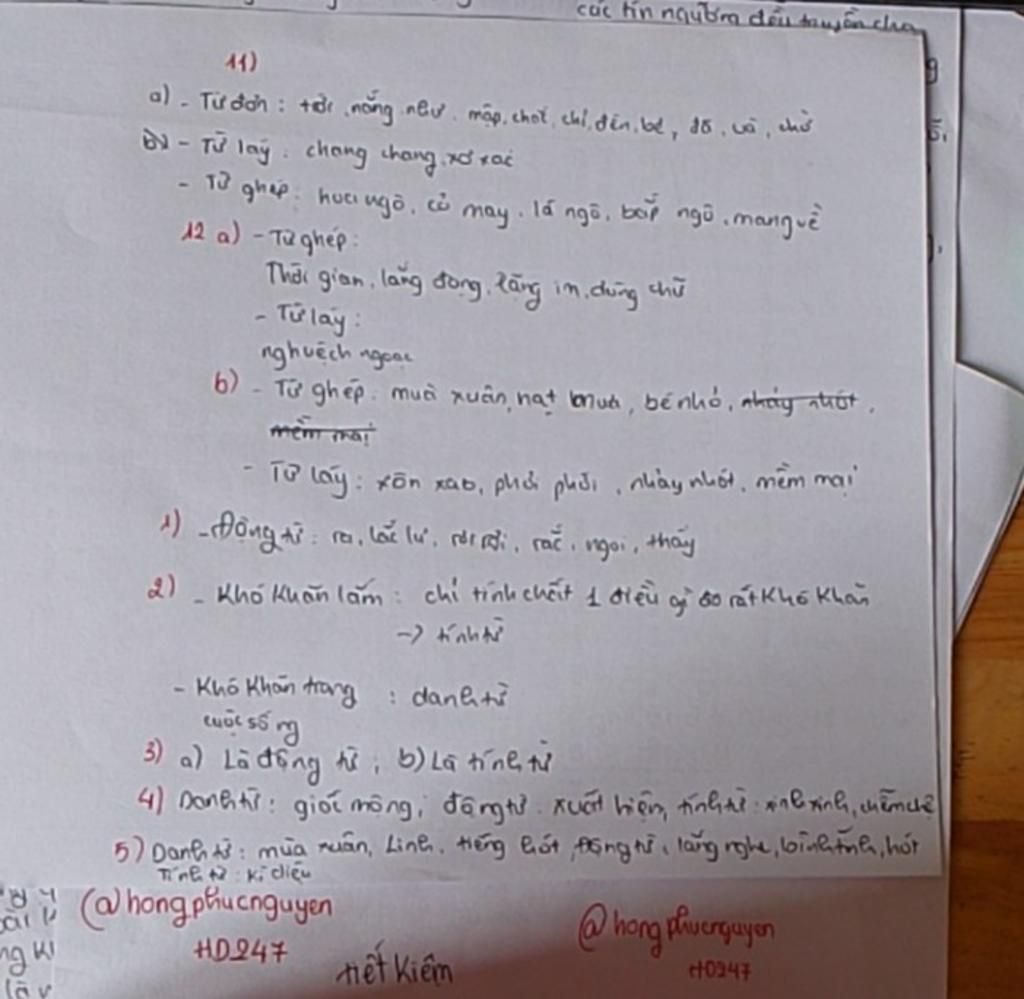 các tín ngưỡng đều truyền cho
11)
a) - Từ đơn : trời, nắng, như, mập, chót, chỉ, đến, bẻ, đã, và, chờ
b) - Từ láy : chang chang, xơ xác
- Từ ghép : hoa ngô, cỏ may, lá ngô, bắp ngô, mang về
12 a) - Từ ghép :
Thời gian, lắng đọng, lặng im, dòng chữ
- Từ láy :
nghuệch ngoạc
b) - Từ ghép : muà xuân, hạt mưa, bé nhỏ, nhảy nhót,
mềm mại
- Từ láy : xôn xao, phơi phới, nhảy nhót, mềm mại
1) - Động từ : ra, lắc lư, rơi rơi, rắc, ngoi, thấy
2) - Khó khăn lắm : chỉ tính chất 1 điều gì đó rất khó khăn
-> tính từ
- Khó khăn trong : danh từ
cuộc sống
3) a) Là động từ ; b) Là tính từ
4) Danh từ : giấc mộng; động từ : xuất hiện, tính từ : xinh xinh, chễm chệ
5) Danh từ : mùa xuân, Linh, tiếng hót, động từ : lắng nghe, bình tĩnh, hót
Tính từ : kì diệu
@hongphucnguyen
HD247
@hongphucnguyen
HD247
tiết kiệm